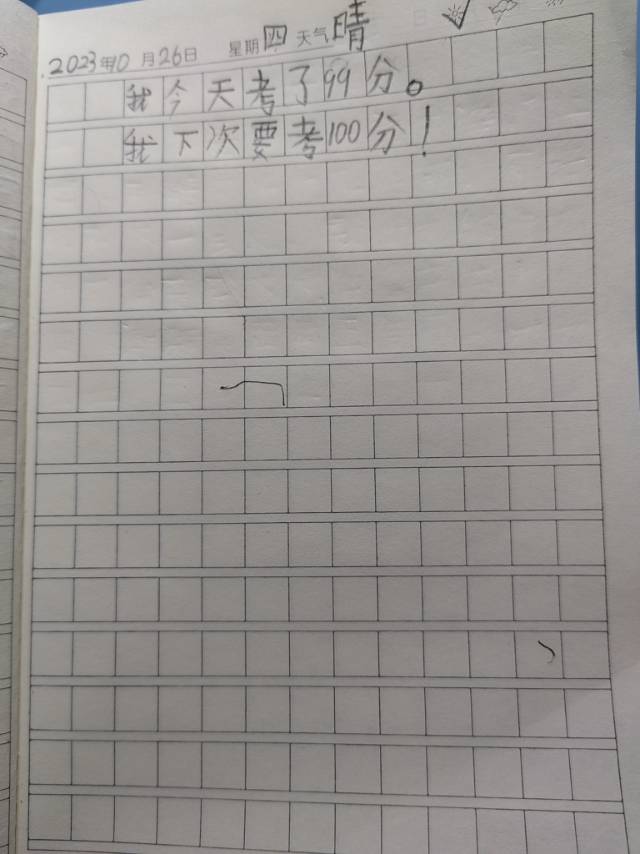 2023年10月26日 星期四 天气晴
我今天考了99分。
我下次要考100分！